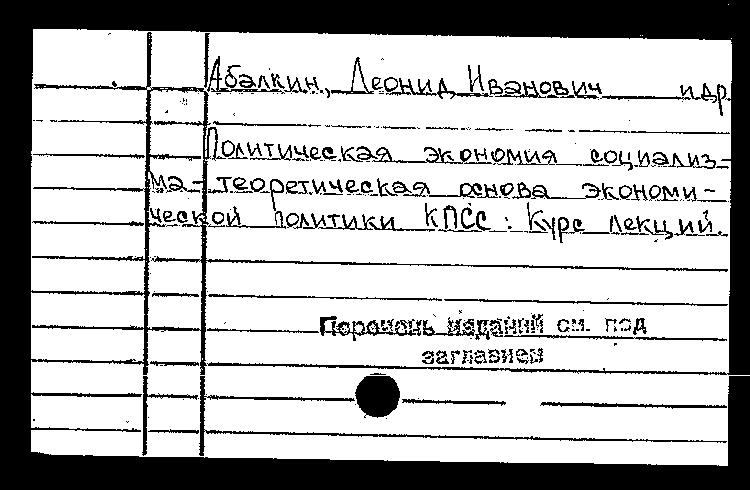 Абалкин, Леонид Иванович и др.
Политическая экономия социализ-
ма - теоретическая основа экономи-
ческой политики КПСС : Курс лекций.
Перечень изданий см. под
заглавием